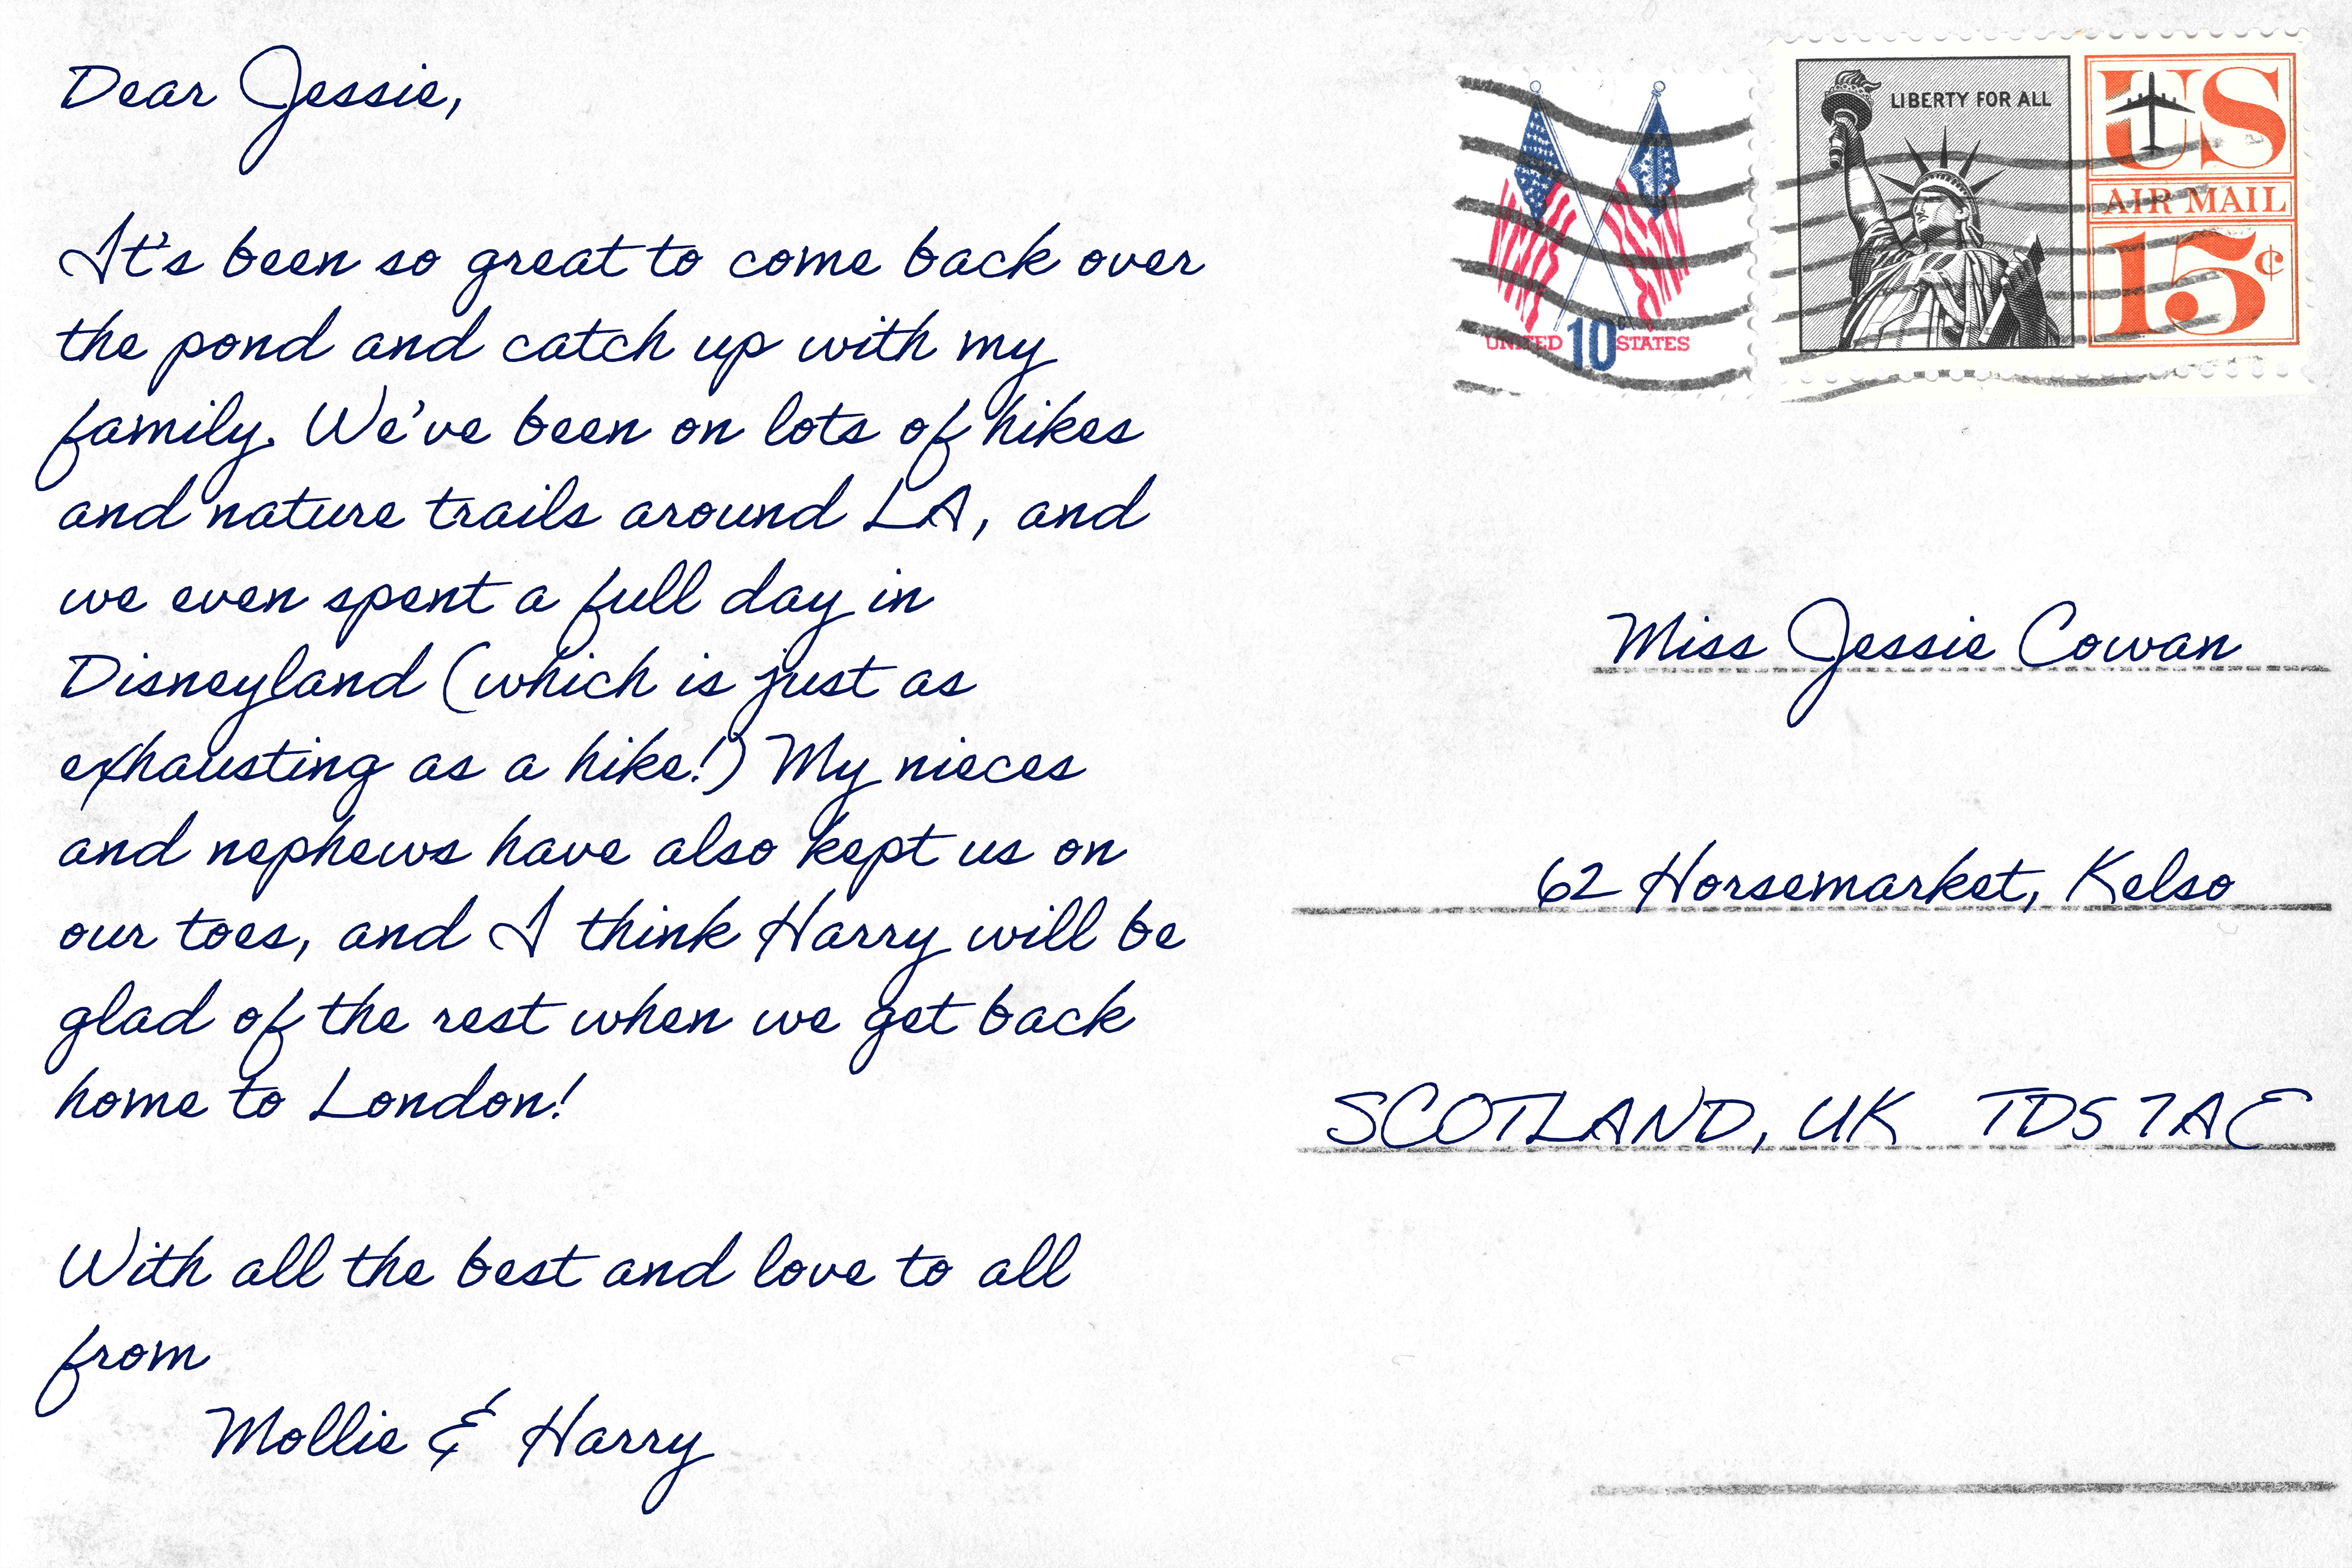 Dear Jessie,
It's been so great to come back over
the pond and catch up with my
family. We've been on lots of hikes
and nature trails around LA, and
we even spent a full day in
Disneyland (which is just as
exhausting as a hike!) My nieces
and nephews have also kept us on
our toes, and I think Harry will be
glad of the rest when we get back
home to London!
With all the best and love to all
from
Mollie & Harry
UNITED 10c STATES
LIBERTY FOR ALL
US
AIR MAIL
15¢
Miss Jessie Cowan
62 Horsemarket, Kelso
SCOTLAND, UK TD5 7AE